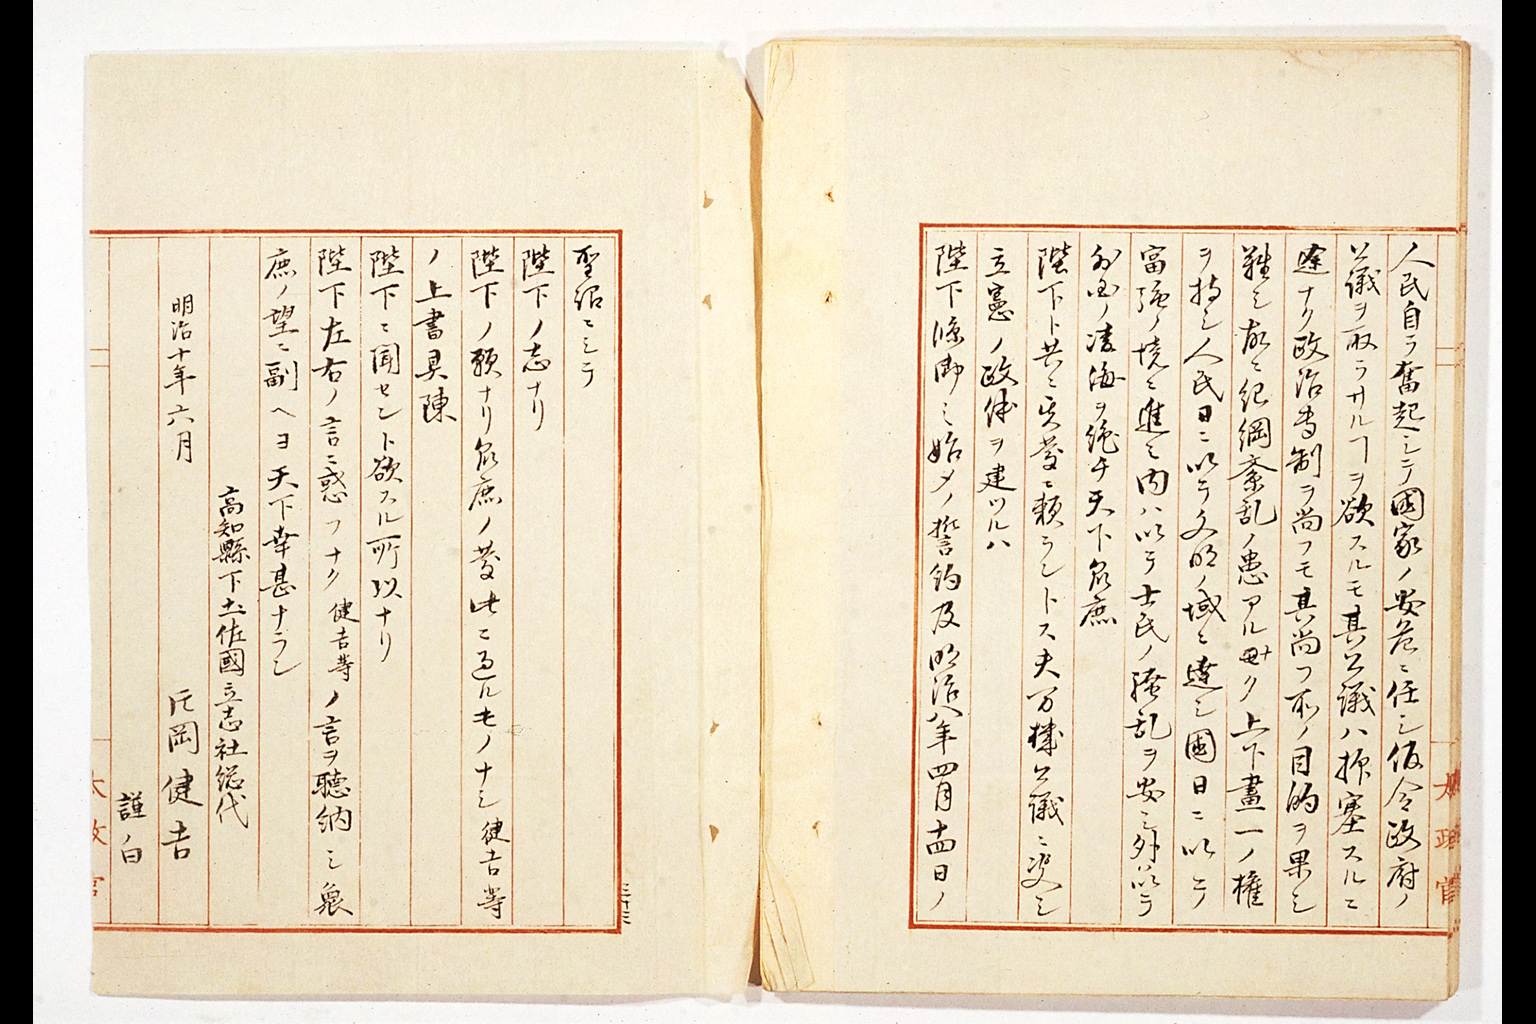 人民自ラ奮起シテ國家ノ安危ニ任シ仮令政府ノ
公議ヲ取ラサルヿヲ欲スルモ其公議ハ抑塞スルニ
達ナク政治専制ヲ尚フモ其尚フ所ノ目的ヲ果シ
難シ故ニ紀綱紊乱ノ患アル毋ク上下畫一ノ権
ヲ持シ人民日ニ以テ文明ノ域ニ達シ國日ニ以テ
富強ノ境ニ進ミ内ハ以テ士民ノ騒乱ヲ安シ外以テ
外国ノ凌侮ヲ絶チ天下衆庶
陛下ト共ニ慶ニ頼ラントス夫万機公議ニ決シ
立憲ノ政体ヲ建ツルハ
陛下臨御ミ始メノ誓約及明治八年四月十四日ノ
太政官
聖詔ニシテ
陛下ノ志ナリ
陛下ノ願ナリ衆庶ノ慶此ニ過ルモノナシ健吉等
ノ上書具陳
陛下ニ聞セント欲スル所以ナリ
陛下左右ノ言ニ惑フナク健吉等ノ言ヲ聴納シ衆
庶ノ望ニ副ヘヨ天下幸甚ナラン
高知縣下土佐國立志社総代
明治十年六月 片岡健吉
謹白
太政官